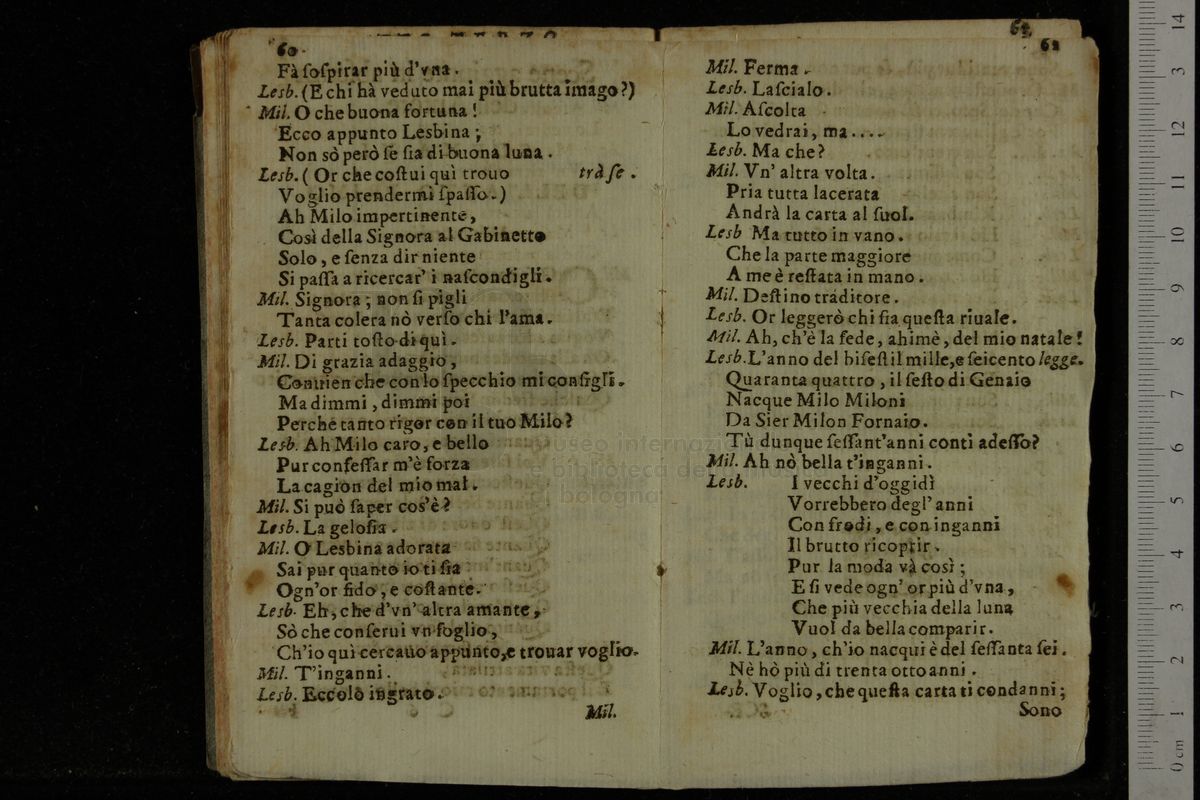 60.
Fà ſoſpirar più d'vna.
Lesb. (E chi hà veduto mai più brutta imago?)
Mil. O che buona fortuna!
Ecco appunto Lesbina;
Non sò però ſe ſia di buona luna.
Lesb. (Or che coſtui quì trouo trà ſe.
Voglio prendermi ſpaſſo.)
Ah Milo impertinente,
Così della Signora al Gabinetto
Solo, e ſenza dir niente
Si paſſa a ricercar' i naſcondigli.
Mil. Signora; non ſi pigli
Tanta colera nò verſo chi l'ama.
Lesb. Parti toſto di quì.
Mil. Di grazia adaggio,
Conuien che con lo ſpecchio mi conſigli.
Ma dimmi, dimmi poi
Perche tanto rigor con il tuo Milo?
Lesb. Ah Milo caro, e bello
Pur confeſſar m'è forza
La cagion del mio mal.
Mil. Si può ſaper cos'è?
Lesb. La geloſia.
Mil. O Lesbina adorata
Sai pur quanto io ti ſia
Ogn'or fido, e coſtante.
Lesb. Eh, che d'vn' altra amante,
Sò che conſerui vn foglio,
Ch'io quì cercauo appunto, e trouar voglio.
Mil. T'inganni.
Lesb. Eccolo ingrato.
Mil.
61
Mil. Ferma.
Lesb. Laſcialo.
Mil. Aſcolta
Lo vedrai, ma....
Lesb. Ma che?
Mil. Vn' altra volta.
Pria tutta lacerata
Andrà la carta al ſuol.
Lesb Ma tutto in vano.
Che la parte maggiore
A me è reſtata in mano.
Mil. Deſtino traditore.
Lesb. Or leggerò chi ſia queſta riuale.
Mil. Ah, ch'è la fede, ahimè, del mio natale!
Lesb. L'anno del biſeſt il mille, e ſeicento legge.
Quaranta quattro, il ſeſto di Genaio
Nacque Milo Miloni
Da Sier Milon Fornaio.
Tù dunque ſeſſant'anni conti adeſſo?
Mil. Ah nò bella t'inganni.
Lesb. I vecchi d'oggidì
Vorrebbero degl' anni
Con frodi, e con inganni
Il brutto ricoprir.
Pur la moda và così;
E ſi vede ogn' or più d'vna,
Che più vecchia della luna
Vuol da bella comparir.
Mil. L'anno, ch'io nacqui è del ſeſſanta ſei.
Nè hò più di trenta otto anni.
Lesb. Voglio, che queſta carta ti condanni;
Sono